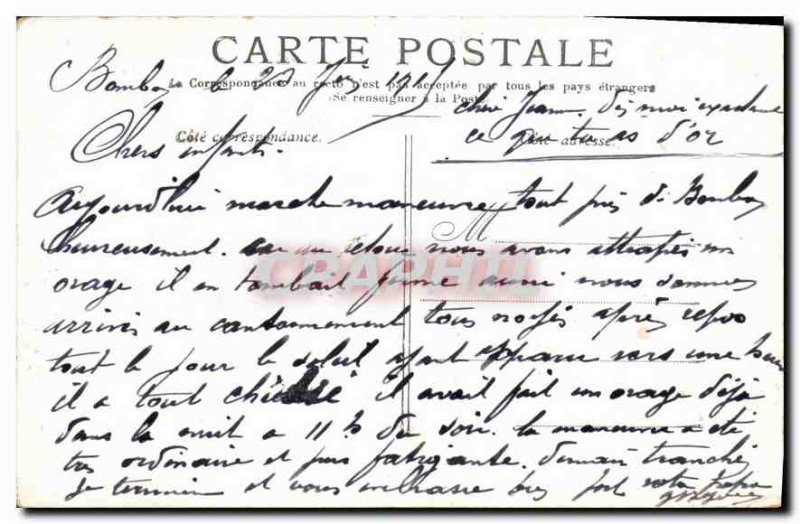 CARTE POSTALE
La Correspondance au recto n'est pas acceptée par tous les pays étrangers
Se renseigner à la Poste
Côté correspondance.
adresse.
ce que tu as d'or
Chers enfants.
Aujourd'hui marche manœuvre tout près de
M
heureusement. car au retour nous avons attrapés un
orage il en tombait ferme aussi nous sommes
arrivés au cantonnement tous après repos
tout le jour le soleil ayant apparu vers une heure
il a tout il avait fait un orage déjà
dans la nuit a 11 h du soir. la manœuvre a été
très ordinaire et peu fatigante. demain tranchés
Je termine et vous embrasse bien fort votre papa
CRAPEHI